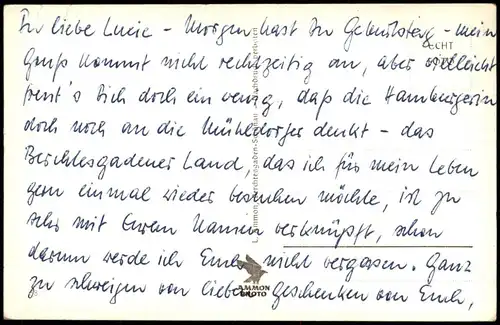 Du liebe Lucie – Morgen hast Du Geburtstag – mein
Gruß kommt nicht rechtzeitig an, aber vielleicht
freut's Dich doch ein wenig, daß die Hamburgerin
doch noch an die Mühldorfer denkt – das
Berchtesgadener Land, das ich für mein Leben
gern einmal wieder besuchen möchte, ist zu
sehr mit Eurem Namen verknüpft, schon
darum werde ich Euch nicht vergessen. Ganz
zu schweigen von lieben Geschenken von Euch,
ECHT
AMMON
PHOTO